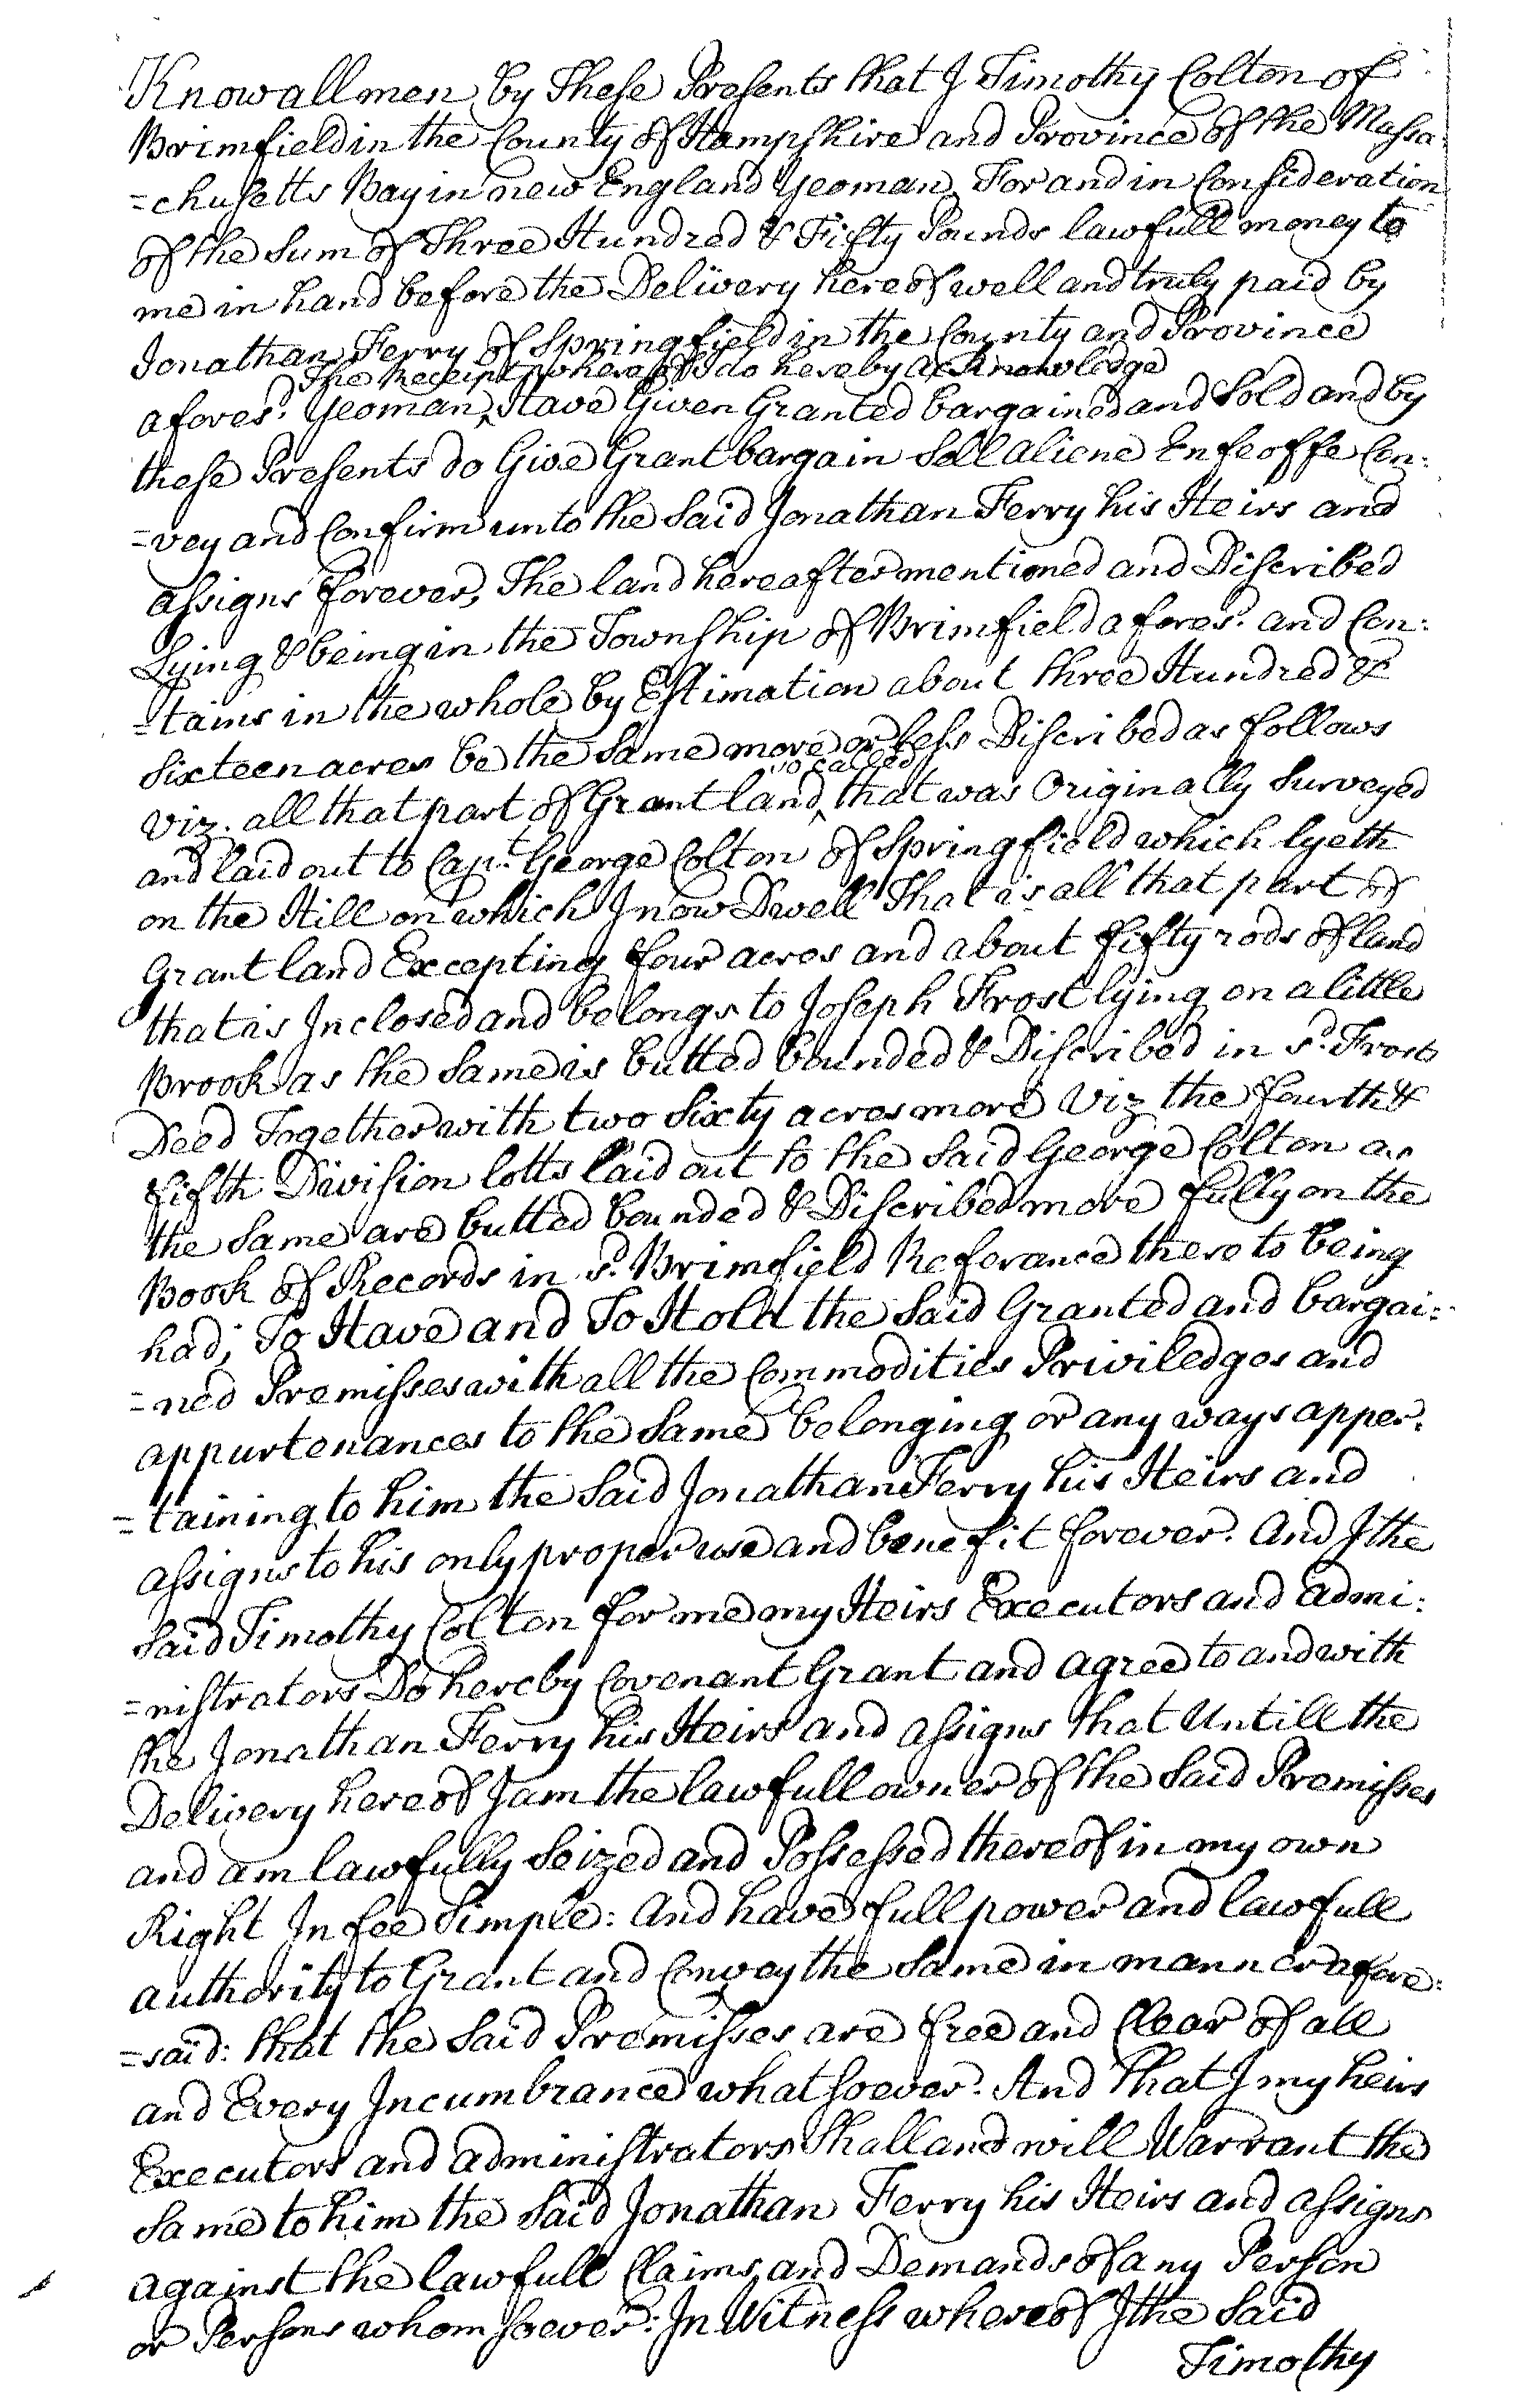 Know all men by These Presents that I Timothy Colton of
Brimfield in the County of Hampshire and Province of the Massa
=chusetts Bay in new England Yeoman, For and in Consideration
of the Sum of Three Hundred & Fifty Pounds lawfull money to
me in hand before the Delivery hereof well and truly paid by
Jonathan Ferry of Springfield in the County and Province
The Receipt whereof I do hereby acknowledge
afores.d Yeoman, ^ Have Given Granted bargained and Sold and by
these Presents do Give Grant bargain Sell aliene Enfeoffe Con:
=vey and Confirm unto the Said Jonathan Ferry his Heirs and
assigns forever, The land hereafter mentioned and Discribed
Lying & being in the Township of Brimfield afores.d and Con:
=tains in the whole by Estimation about three Hundred &
Sixteen acres be the Same more or less Discribed as follows
so called
viz. all that part of Grant land ^ that was Originally Surveyed
and laid out to Cap.t George Colton of Springfield which lyeth
on the Hill on which I now Dwell That is all that part of
Grant land Excepting four acres and about fifty rods of land
that is Inclosed and belongs to Joseph Frost lying on a little
Brook as the Same is butted bounded & Discribed in s.d Frosts
Deed Together with two Sixty acres more Viz the fourth &
fifth Division lotts laid out to the Said George Colton as
the Same are butted bounded & Discribed more fully on the
Book of Records in s.d Brimfield Referance there to being
had; To Have and To Hold the Said Granted and bargai:
=ned Premisses with all the Commodities Priviledges and
appurtenances to the Same belonging or any ways apper:
=taining to him the Said Jonathan Ferry his Heirs and
assigns to his only proper use and benefit forever. And I the
Said Timothy Colton for me my Heirs Executors and admi:
=nistrators Do hereby Covenant Grant and agree to and with
the Jonathan Ferry his Heirs and assigns that Untill the
Delivery hereof I am the lawfull owner of the Said Premisses
and am lawfully Seized and Possessed thereof in my own
Right In fee Simple: And have full power and lawfull
authority to Grant and Convey the Same in manner afore:
=said: that the Said Premisses are free and Clear of all
and Every Incumbrance whatsoever. And That I my heirs
Executors and administrators Shall and will Warrant the
Same to him the Said Jonathan Ferry his Heirs and assigns
against the lawfull Claims and Demands of any Person
or Persons whomsoever: In Witness whereof I the Said
Timothy